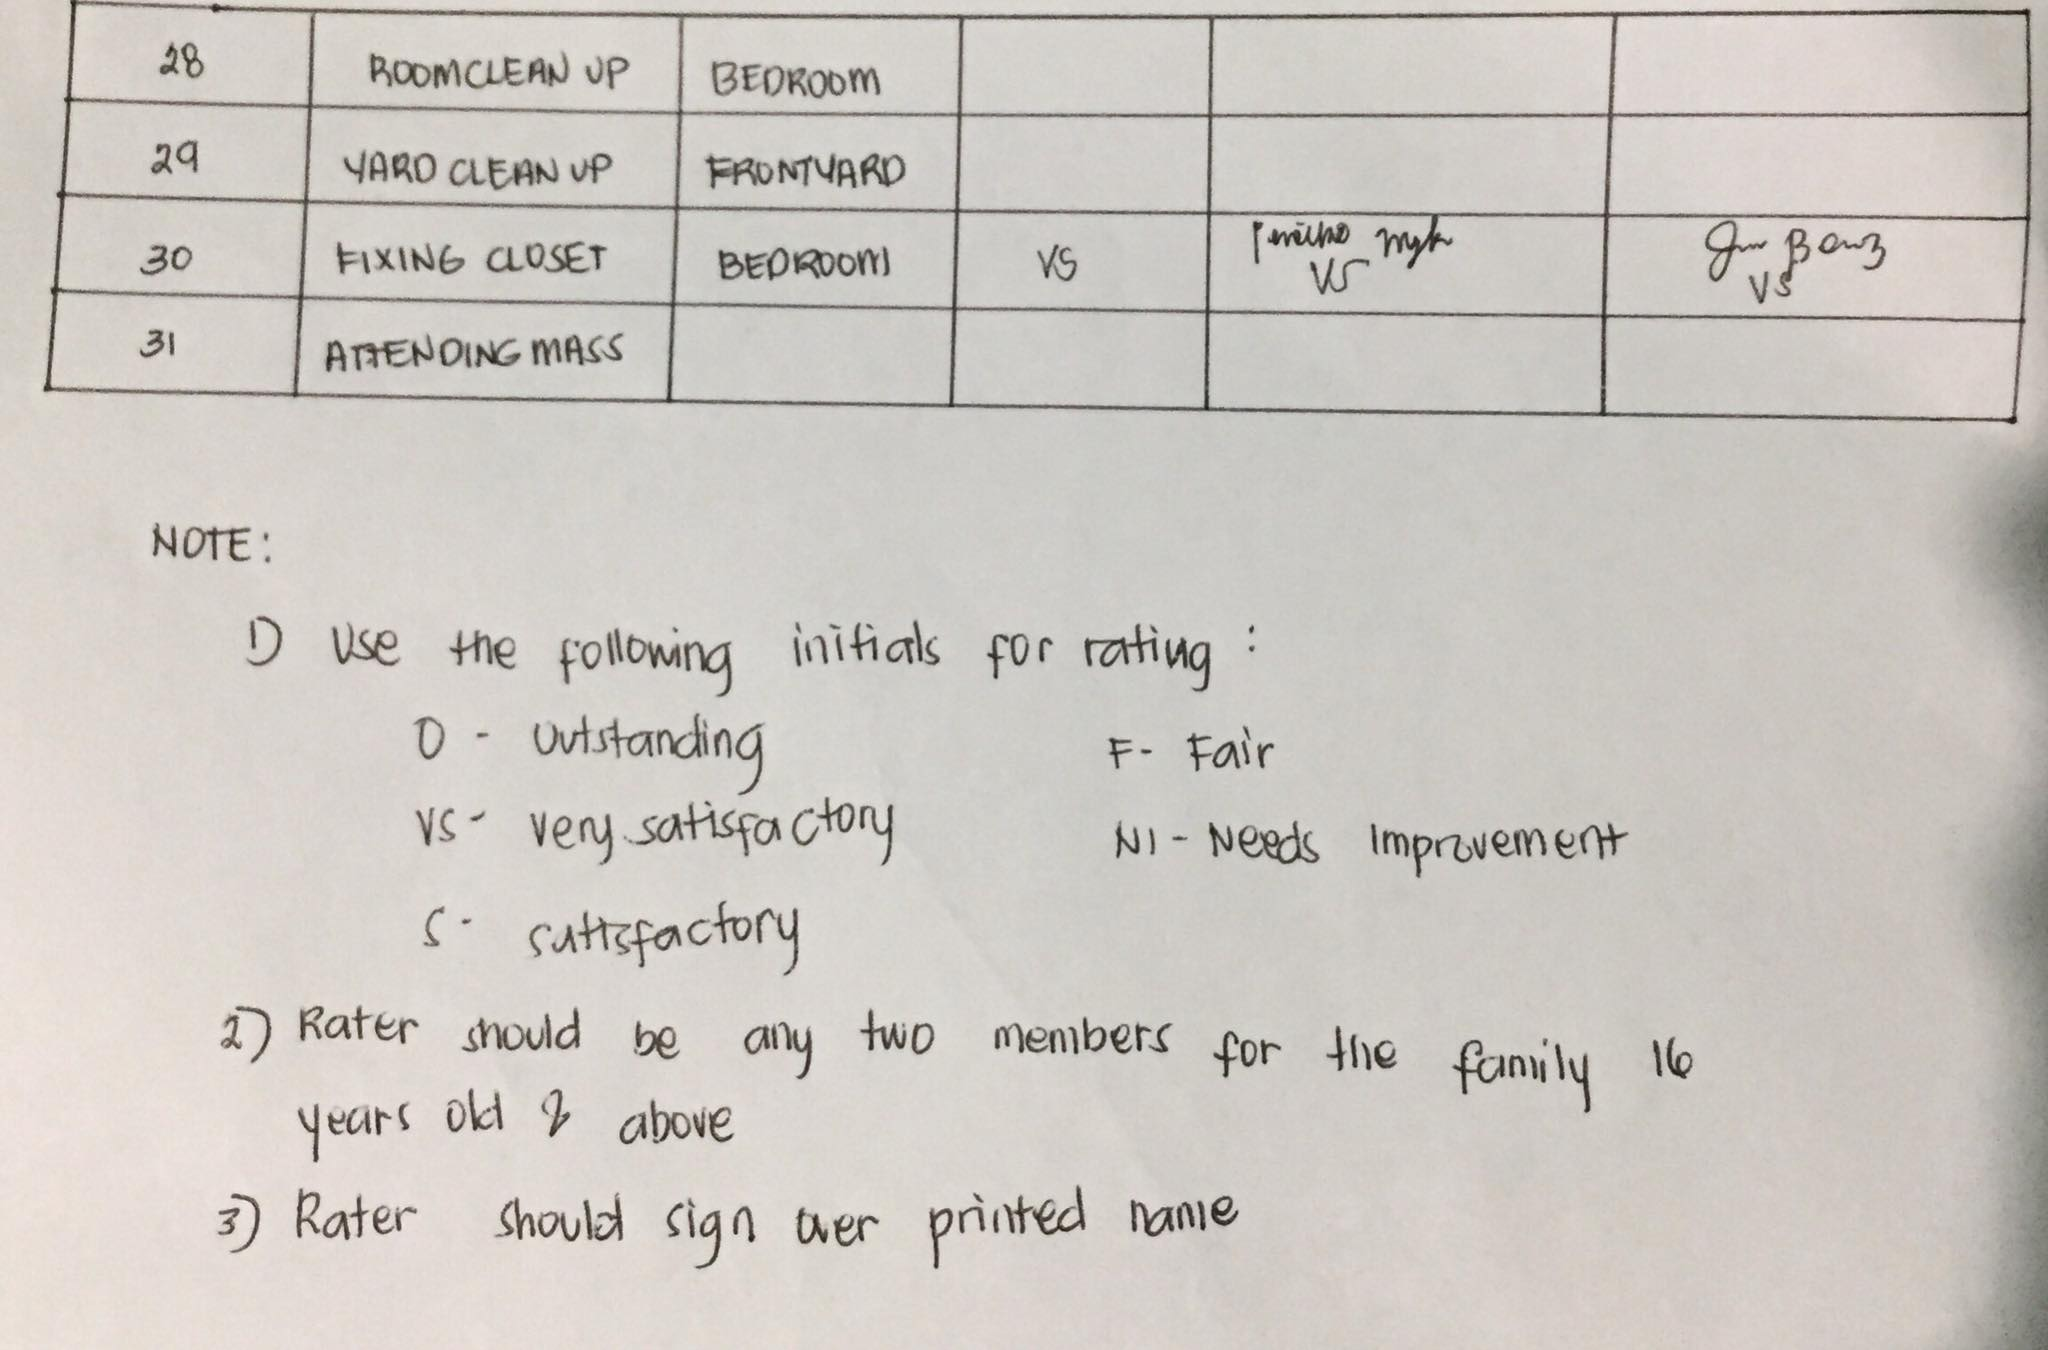 28 ROOMCLEAN UP BEDROOM
29 YARD CLEAN UP FRONTYARD
30 FIXING CLOSET BEDROOM VS VS VS
31 ATTENDING MASS
NOTE:
1) Use the following initials for rating :
O - Outstanding F- Fair
VS- very satisfactory NI - Needs Improvement
S- satisfactory
2) Rater should be any two members for the family 16
years old & above
3) Rater should sign over printed name